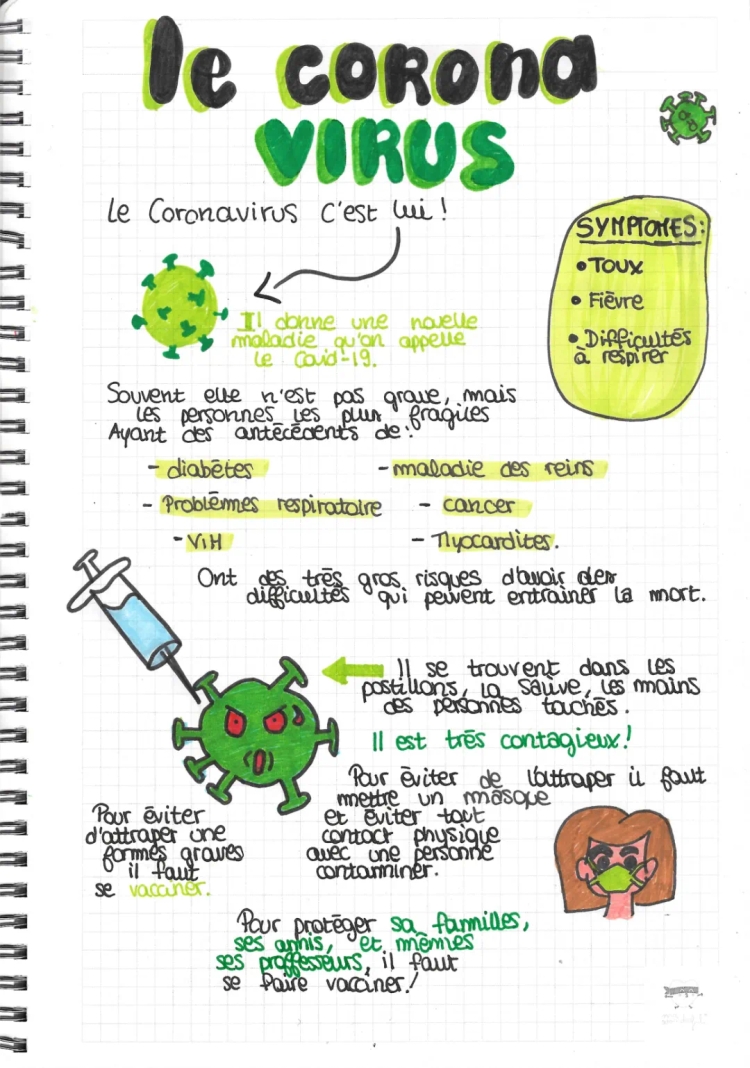 le corona
VIRUS
Le Coronavirus c'est lui !
SYMPTOMES:
• Toux
• Fièvre
• Difficultés
à respirer
Il donne une nouvelle
maladie qu'on appelle
le Covid-19.
Souvent elle n'est pas grave, mais
les personnes les plus fragiles
Ayant des antécédents de :
- diabètes
- maladie des reins
- Problèmes respiratoire
- cancer
- ViH
- Myocardites.
Ont des très gros risques d'avoir des
difficultés qui peuvent entrainer la mort.
Il se trouvent dans les
postillons, la salive, les mains
des personnes touchés.
Il est très contagieux !
Pour éviter de l'attraper il faut
mettre un masque
et éviter tout
contact physique
avec une personne
contaminer.
Pour éviter
d'attraper une
formes graves
il faut
se vacciner.
Pour protéger sa familles,
ses amis, et mêmes
ses proffesseurs, il faut
se faire vacciner !